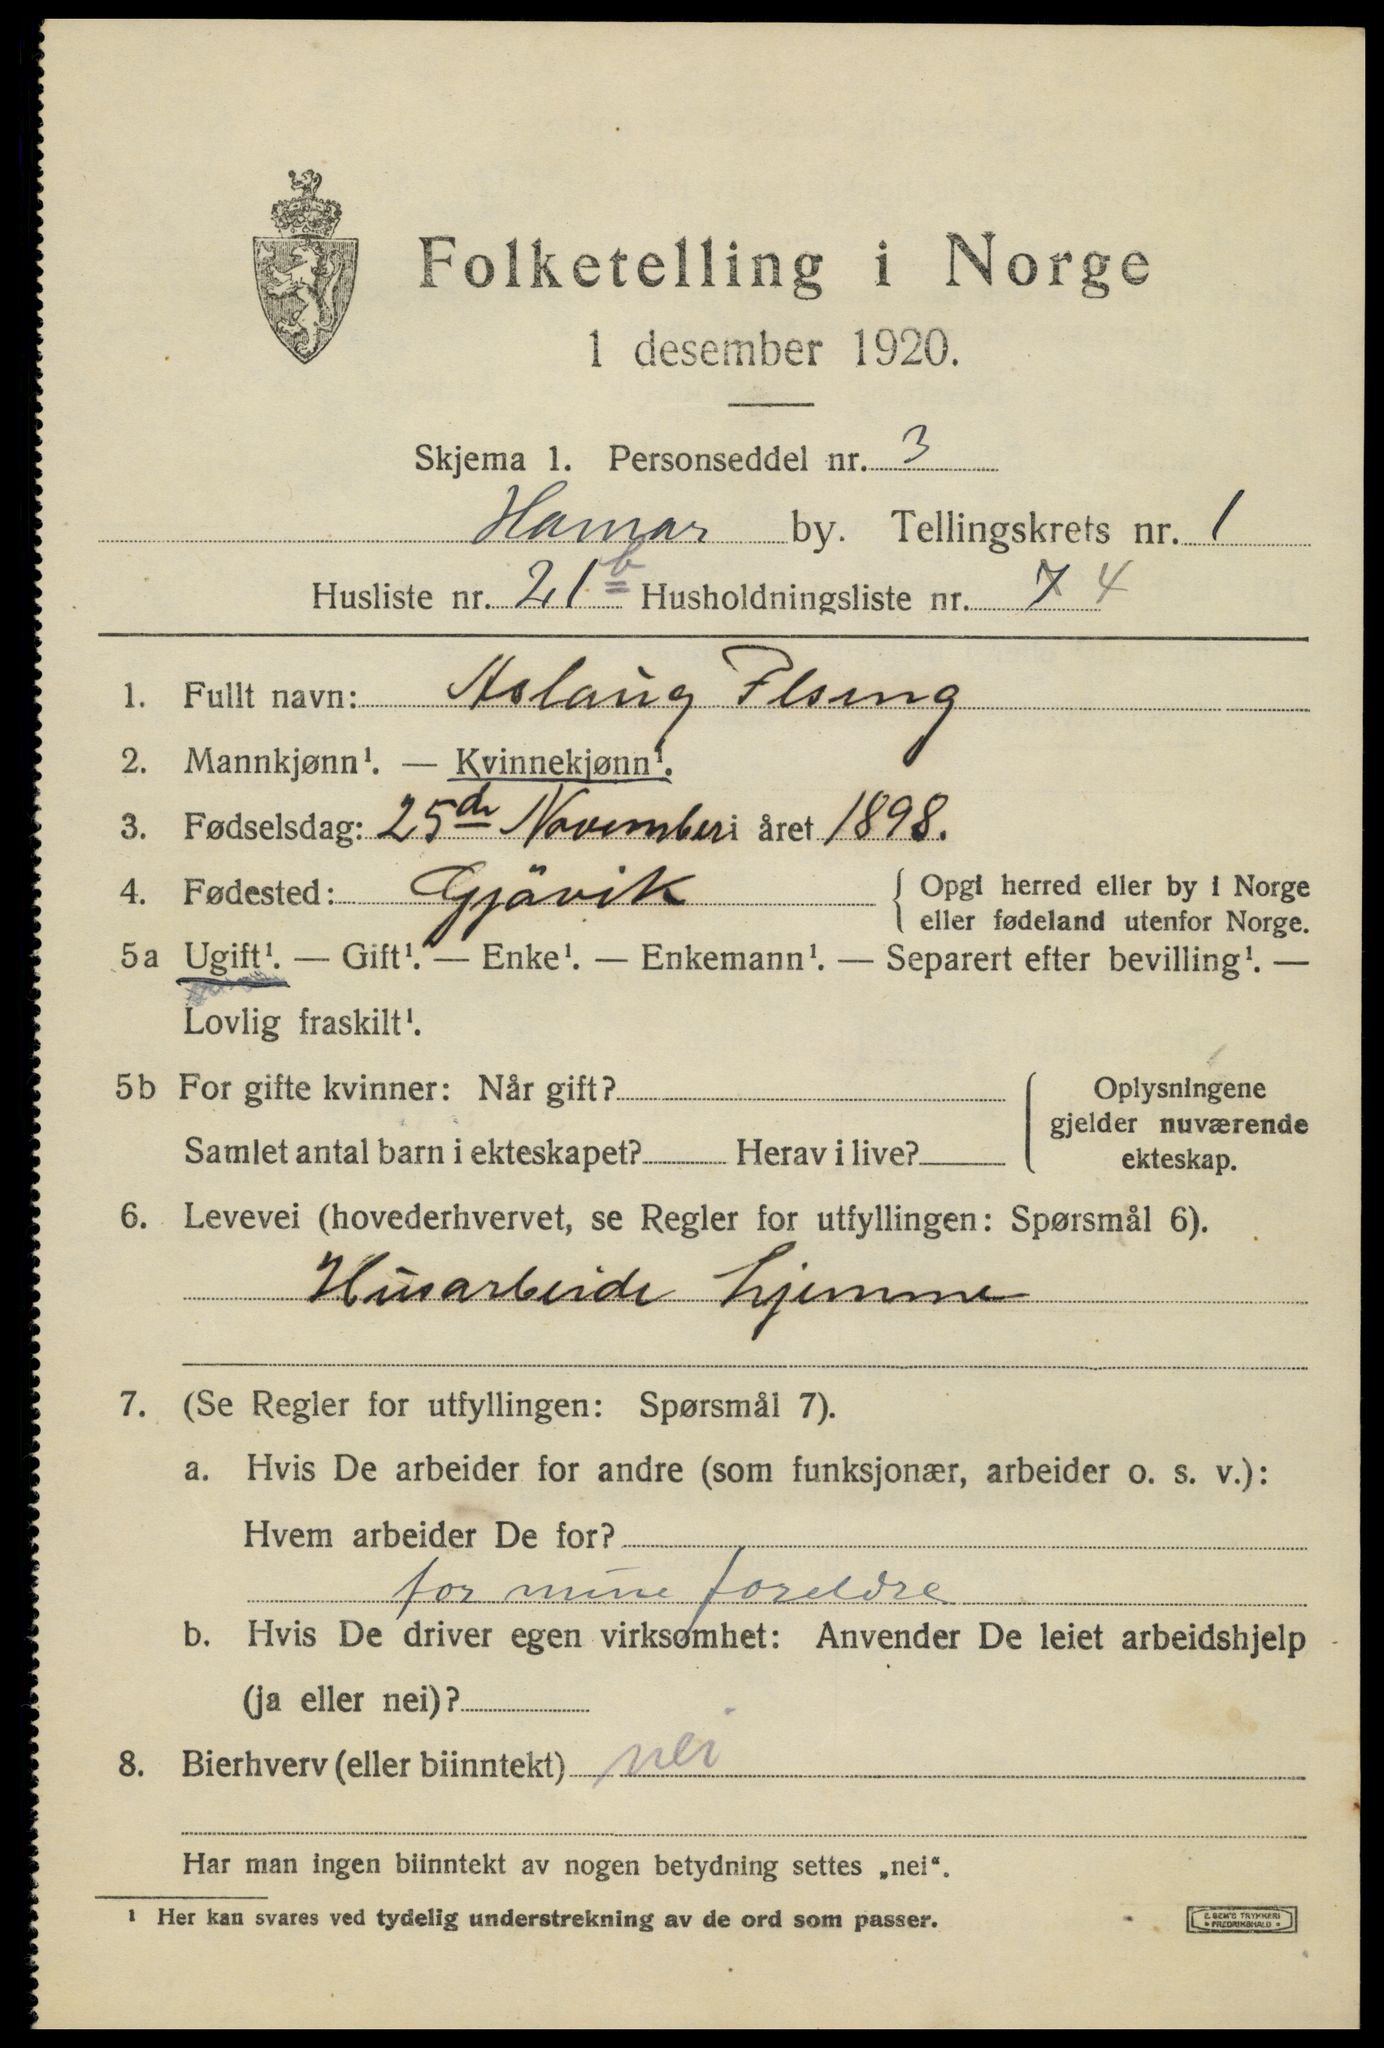 Folketelling i Norge
1 desember 1920.
Skjema 1. Personseddel nr. 3
Hamar by. Tellingskrets nr. 1
Husliste nr. 21 b Husholdningsliste nr. 7 4
1. Fullt navn: Aslaug Elseng
2. Mannkjønn¹. — Kvinnekjønn¹.
3. Fødselsdag: 25de November i året 1898.
4. Fødested: Gjövik { Opgi herred eller by i Norge
eller fødeland utenfor Norge.
5a Ugift¹. — Gift¹. — Enke¹. — Enkemann¹. — Separert efter bevilling¹. —
Lovlig fraskilt¹.
5b For gifte kvinner: Når gift? Oplysningene
gjelder nuværende
Samlet antal barn i ekteskapet? Herav i live? ekteskap.
6. Levevei (hovederhvervet, se Regler for utfyllingen: Spørsmål 6).
Husarbeide hjemme
7. (Se Regler for utfyllingen: Spørsmål 7).
a. Hvis De arbeider for andre (som funksjonær, arbeider o. s. v.):
Hvem arbeider De for?
for mine foreldre
b. Hvis De driver egen virksomhet: Anvender De leiet arbeidshjelp
(ja eller nei)?
8. Bierhverv (eller biinntekt) nei
Har man ingen biinntekt av nogen betydning settes „nei“.
¹ Her kan svares ved tydelig understrekning av de ord som passer.
E. SEM'S TRYKKERI
FREDRIKSHALD